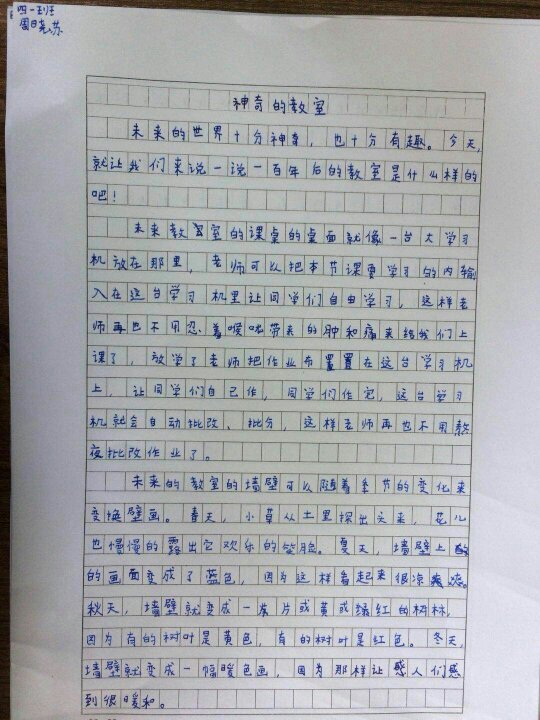 四一班
周晓苏
神奇的教室
未来的世界十分神奇,也十分有趣。今天,
就让我们来说一说一百年后的教室是什么样的
吧!
未来教室的课桌的桌面就像一台大学习
机放在那里,老师可以把本节课要学习的内输
入在这台学习机里让同学们自由学习,这样老
师再也不用忍着喉咙带来的肿和痛来给我们上
课了,放学了老师把作业布置在这台学习机
上,让同学们自己作,同学们作完,这台学习
机就会自动批改、批分,这样老师再也不用熬
夜批改作业了。
未来的教室的墙壁可以随着季节的变化来
变换壁画。春天,小草从土里探出头来,花儿
也慢慢的露出它欢乐的笑脸。夏天,墙壁上
的画面变成了蓝色,因为这样看起来很凉爽。
秋天,墙壁就变成一片片或黄或绿红的树林,
因为有的树叶是黄色,有的树叶是红色。冬天,
墙壁就变成一幅暖色画,因为那样让人们感
到很暖和。